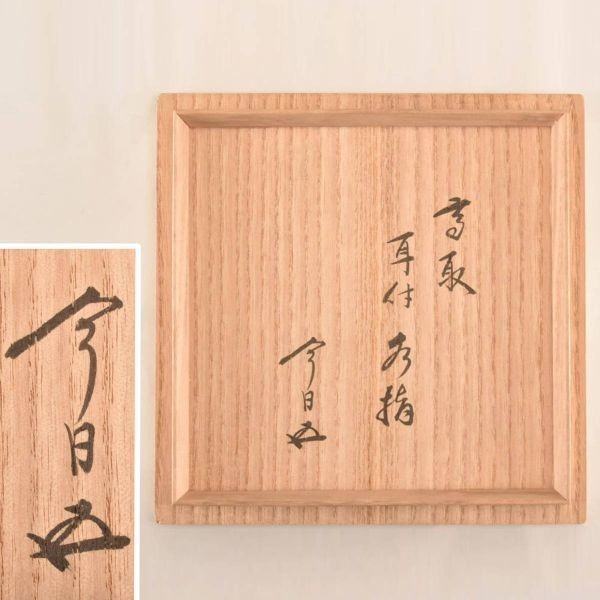 高取
耳付 水指
今日
今日